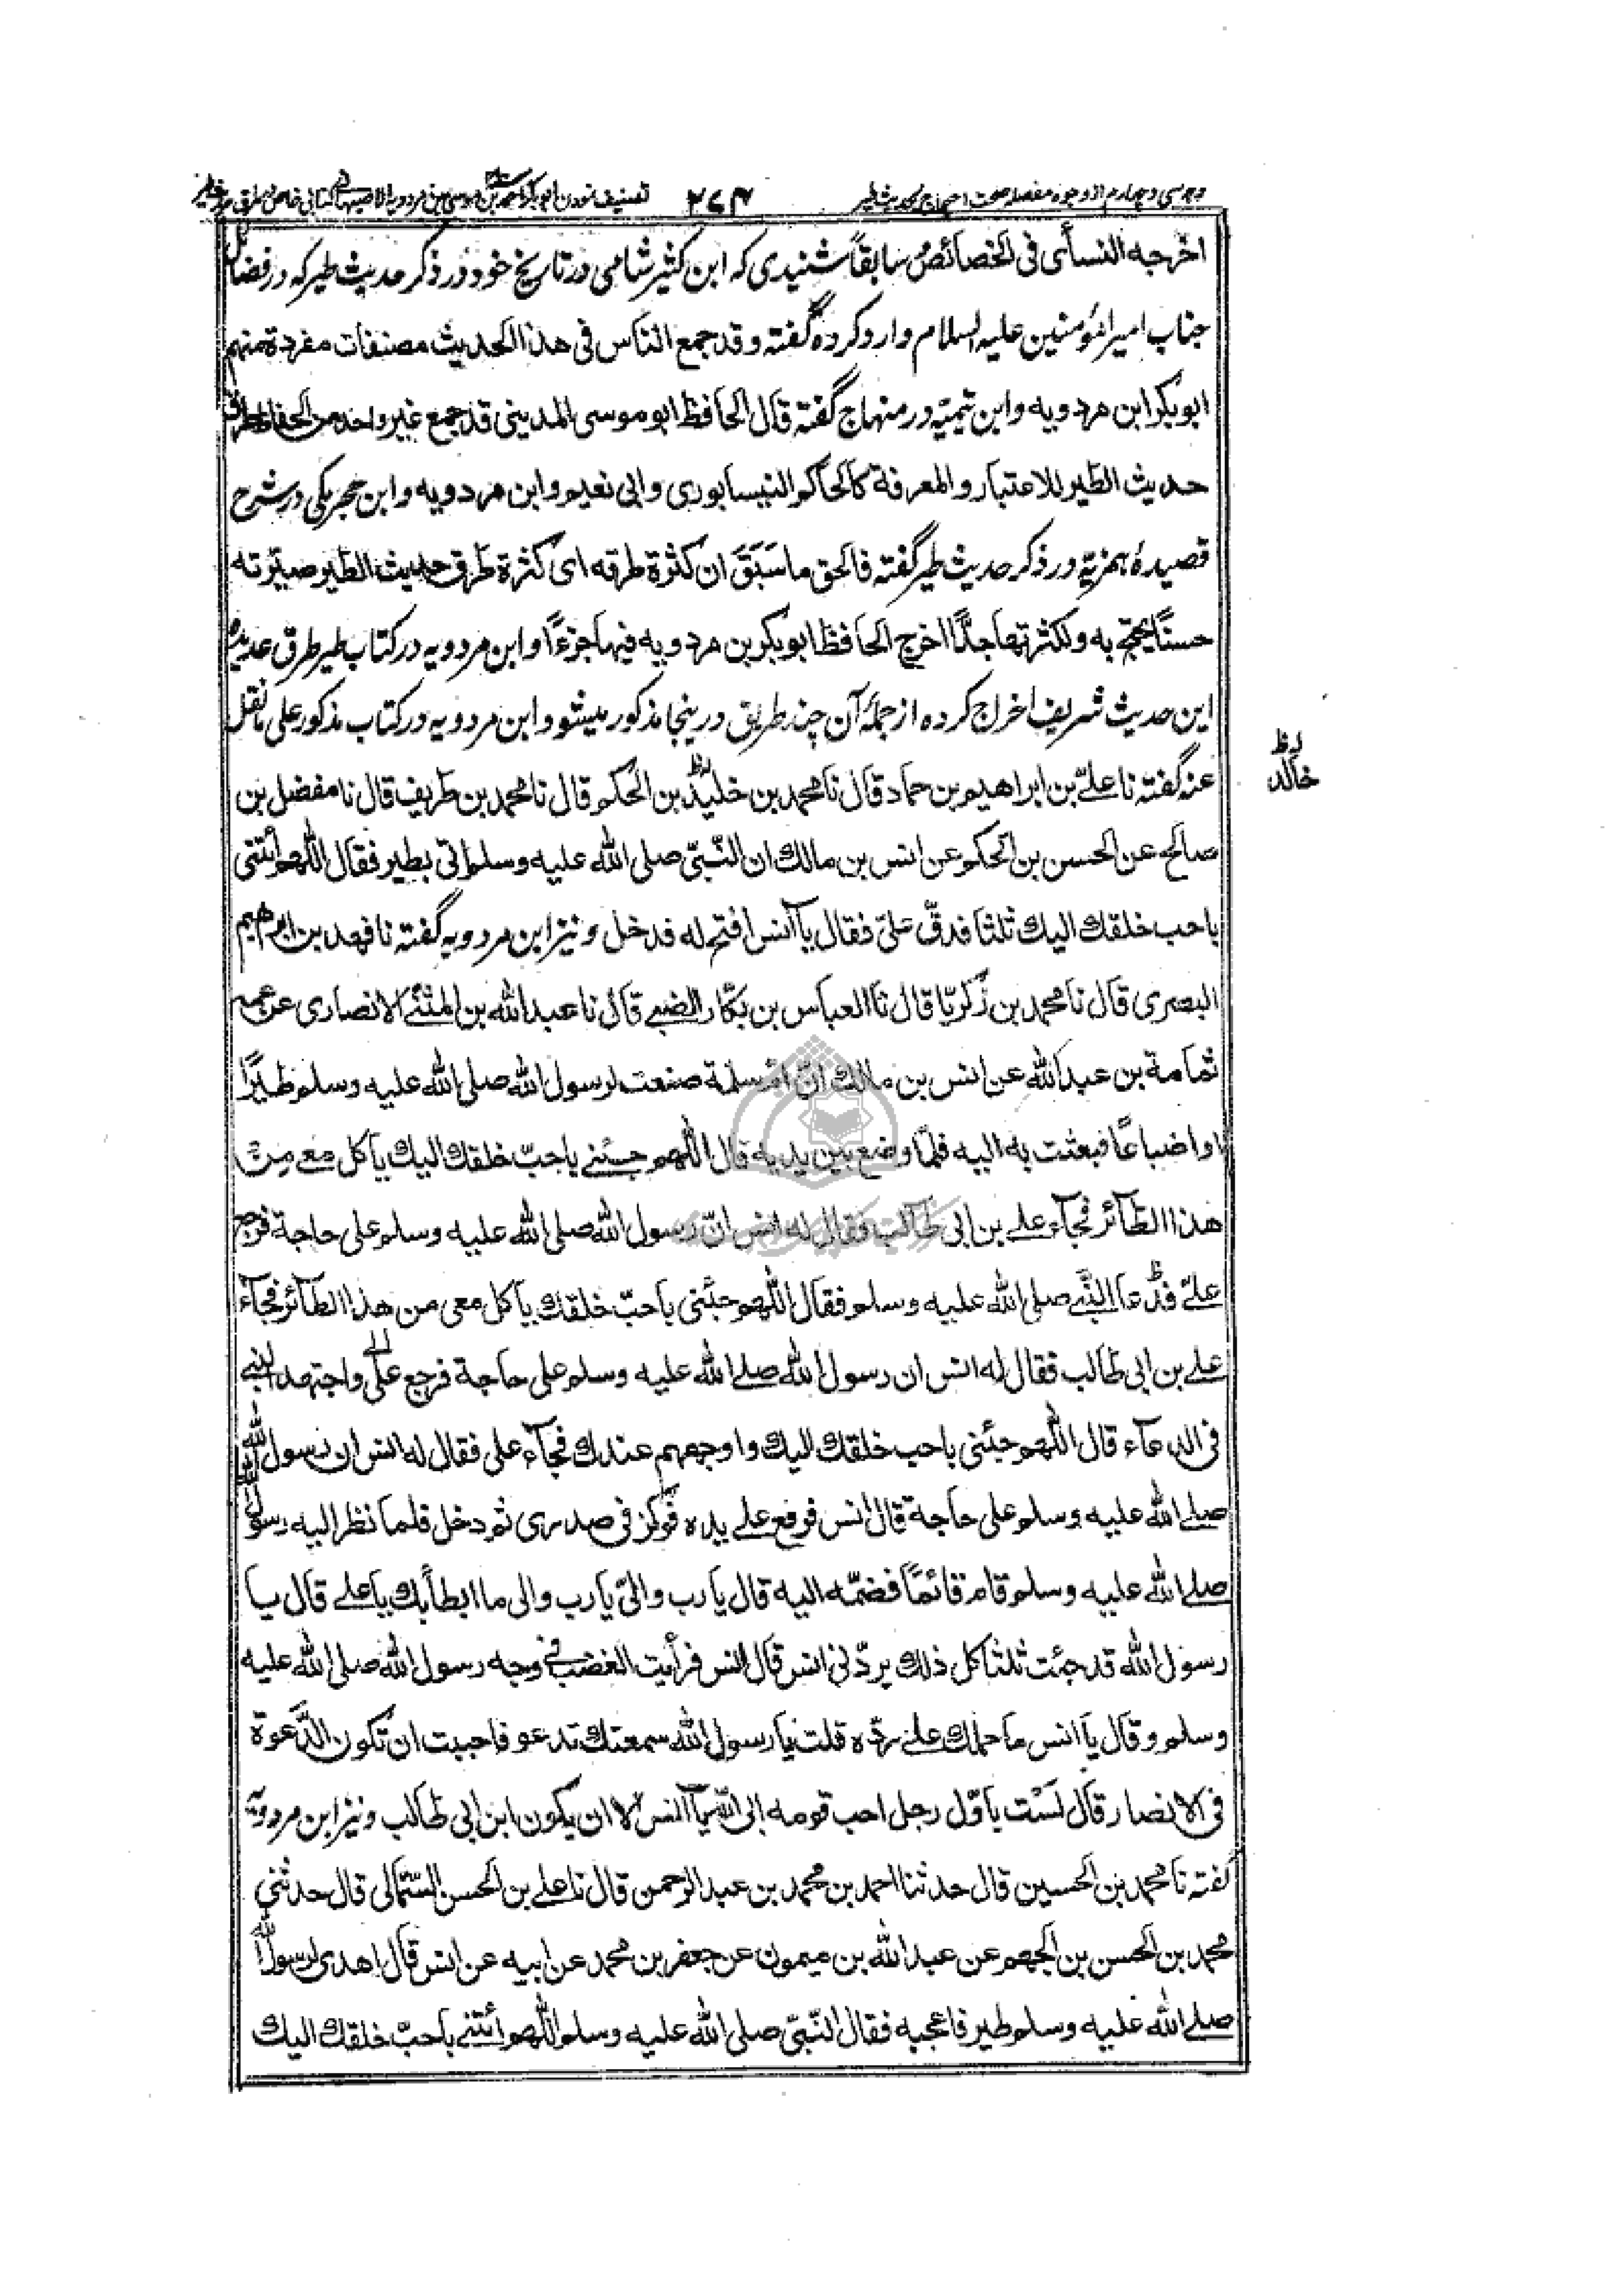 وجه سی و چهارم از وجوه مفصله صحت احتجاج بحدیث طیر ۲۷۴ تصنیف نمودن ابوبکر احمد بن موسی بن مردویه الاصبهانی کتابی خاص در طرق حدیث طیر
اخرجه النسأى فى الخصائص سابقاً شنیدی که ابن کثیر شامی در تاریخ خود در ذکر حدیث طیر که در فضائل
جناب امیرالمؤمنین علیه السلام وارد کرده گفته وقد جمع الناس فى هذا الحديث مصنفات مفردة منهم
ابوبكر ابن مردويه و ابن تیمیّه در منهاج گفته قال الحافظ ابو موسى المدينى قد جمع غير واحد من الحفاظ طرق
حديث الطير للاعتبار والمعرفة كالحاكم النيسابورى وابى نعيم وابن مردويه و ابن حجر مکی در شرح
قصیدهٔ همزیّه در ذکر حدیث طیر گفته فالحق ما سَبَقَ ان كثرة طرقه اى كثرة طرق حديث الطير صيّرته
حسنًا يحتج به ولكثرتها جدًّا اخرج الحافظ ابوبكر بن مردويه فيها جزءًا و ابن مردویه در کتاب طیر طرق عدیده
این حدیث شریف اخراج کرده از جملهٔ آن چند طریق در اینجا مذکور میشود ابن مردویه در کتاب مذکور علی ما نقل
عنه گفته نا علىّ بن ابراهيم بن حماد قال نا محمد بن خليد بن الحكم قال نا محمد بن طريف قال نا مفضل بن
خالد
صالح عن الحسن بن الحكم عن انس بن مالك ان النّبىّ صلى الله عليه وسلم اتى بطير فقال اللهم ائتنى
باحب خلقك اليك ثلثا فدقّ علىّ فقال يا انس افتح له فدخل و نیز ابن مردویه گفته نا فهد بن ابراهيم
البصرى قال نا محمد بن زكريّا قال نا العباس بن بكّار الضبى قال نا عبد الله بن المثنى الانصارى عن عمه
ثمامة بن عبد الله عن انس بن مالك انّ امّ سلمة صنعت لرسول الله صلى الله عليه وسلم طيرًا
او اضباعًا فبعثت به اليه فلمّا وضع بين يديه قال اللهم جئنى باحبّ خلقك اليك ياكل معى من
هذا الطّائر فجاء على بن ابى طالب فقال له انس انّ رسول الله صلى الله عليه وسلم على حاجة فرجع
علىّ فدعا النّبى صلى الله عليه وسلم فقال اللهم جئنى باحبّ خلقك ياكل معى من هذا الطائر فجاء
على بن ابى طالب فقال له انس ان رسول الله صلى الله عليه وسلم على حاجة فرجع على واجتهد النبى
فى الدعاء قال اللهم جئنى باحب خلقك اليك واوجههم عندك فجاء على فقال له انس ان رسول الله
صلى الله عليه وسلم على حاجة قال انس فرفع على يده فوكز فى صدرى ثم دخل فلما نظر اليه رسول الله
صلى الله عليه وسلم قام قائمًا فضمّه اليه قال يا رب والىّ يا رب والى ما ابطأ بك يا على قال يا
رسول الله قد جئت ثلثا كل ذلك يردّنى انس قال انس فرأيت الغضب فى وجه رسول الله صلى الله عليه
وسلم وقال يا انس ما حملك على ردّه قلت يا رسول الله سمعتك تدعو فاحببت ان تكون الدّعوة
فى الانصار قال لست باوّل رجل احب قومه ابى الله يا انس الا ان يكون ابن ابى طالب و نیز ابن مردویه
گفته نا محمد بن الحسين قال حدثنا احمد بن محمد بن عبد الرحمن قال نا على بن الحسن السّمالى قال حدثنى
محمد بن الحسن بن الجهم عن عبد الله بن ميمون عن جعفر بن محمد عن ابيه عن انس قال اهدى لرسول الله
صلى الله عليه وسلم طير فاعجبه فقال النّبىّ صلى الله عليه وسلم اللهم ائتنى باحبّ خلقك اليك